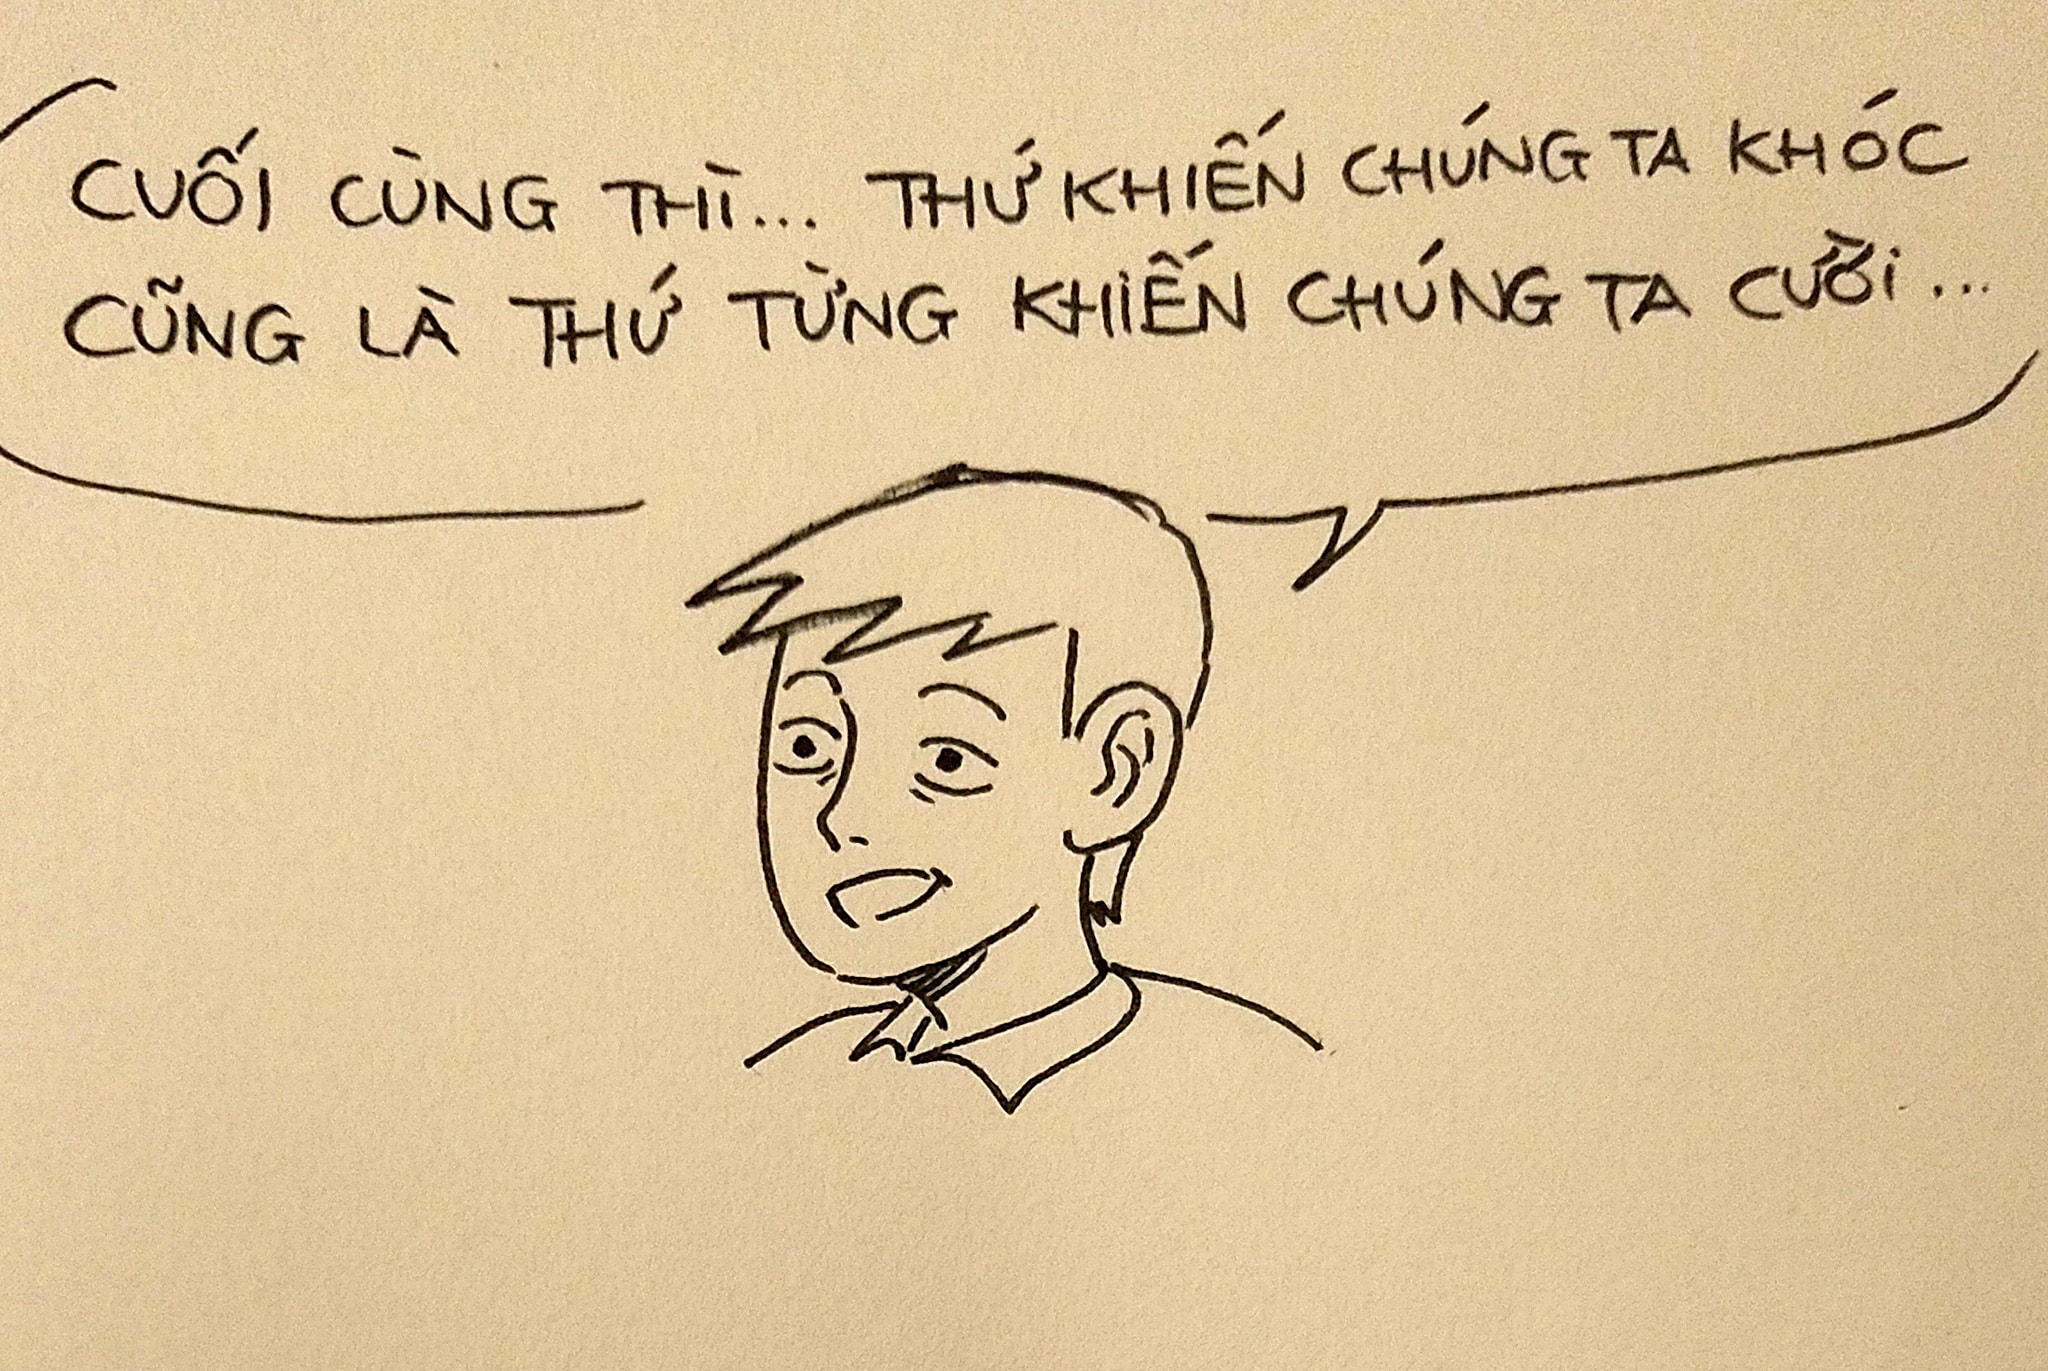 CUỐI CÙNG THÌ... THỨ KHIẾN CHÚNG TA KHÓC
CŨNG LÀ THỨ TỪNG KHIẾN CHÚNG TA CƯỜI...